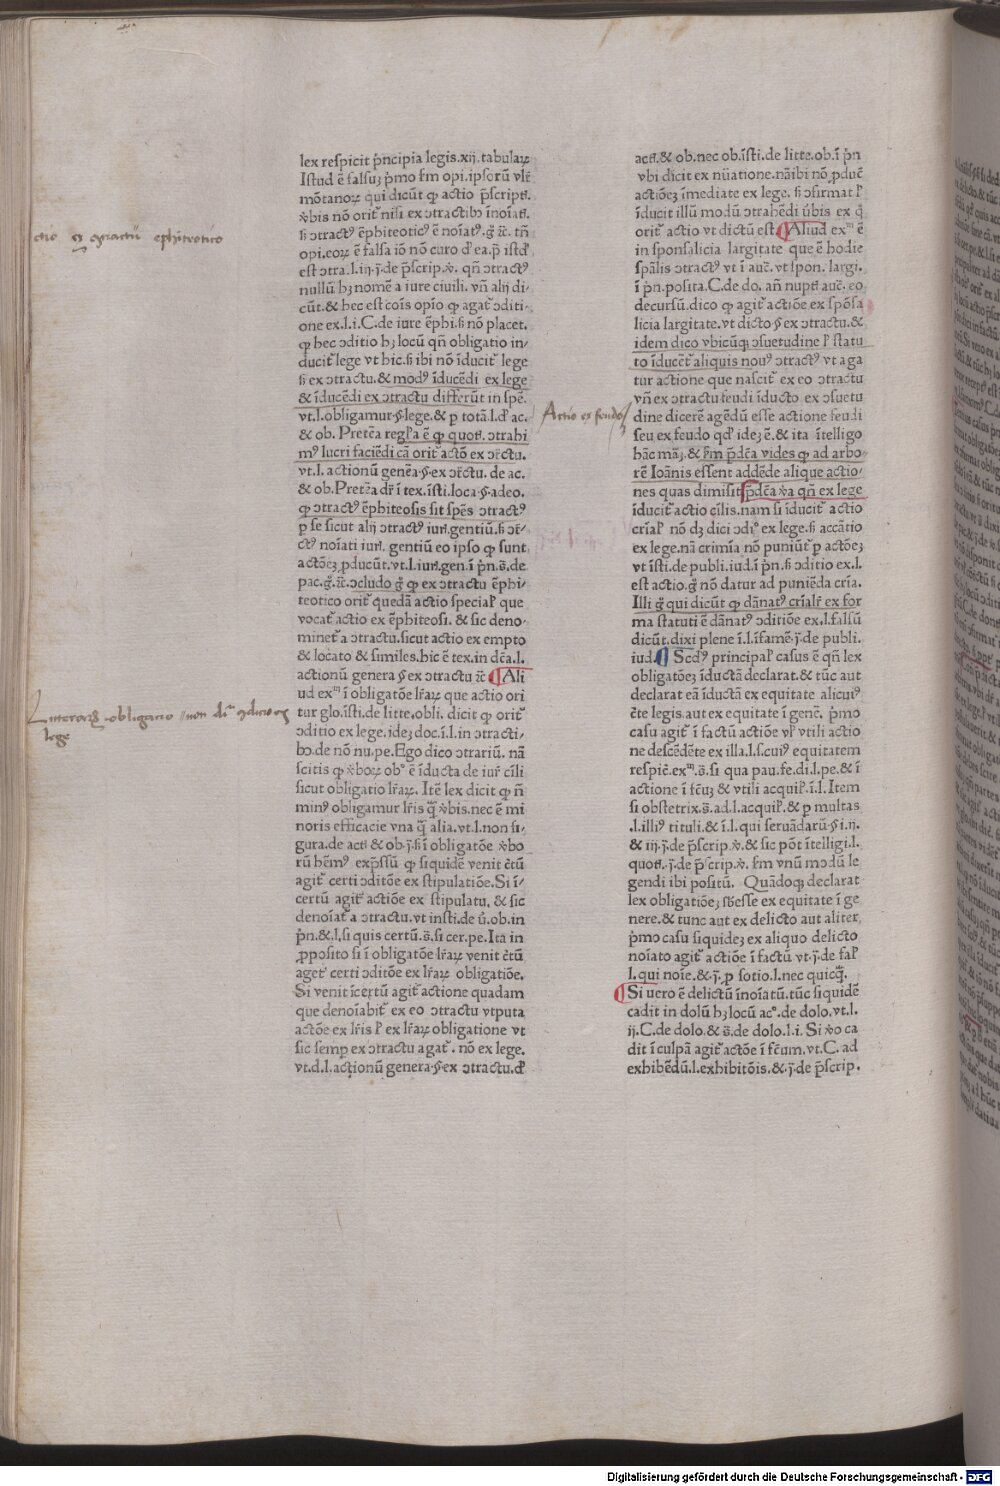 lex respicit p̄ncipia legis.xij.tabulaꝝ
Istud ē falsuꝫ p̄mo ẜm opi.ipsorū vlṫ
mōtanoꝝ qui dicūt ꝙ actio p̄scriptꝭ.
v̇bis nō oritᷣ nisi ex ↄtractibꝯ īnoiatꝭ.
ẜꝫ ↄtractꝯ ēphiteoticꝯ ē noiatꝯ.g̊ ⁊c̄. tn̄
opi.eoꝝ ē falsa iō nō curo d̓ ea.p̄ istd̓
est ↄtra.l.iij.ȷ̄.de p̄scrip.v̇. qn̄ ↄtractꝯ
nullū hꝫ nomē a iure ciuili. vn̄ alij di⸗
cūt.& hec est cōis opīo ꝙ agatᷣ ↄditi⸗
one ex.l.i.C.de iure ēphi.ẜꝫ nō placet.
ꝙ hec ↄditio hꝫ locū qn̄ obligatio in⸗
ducitᷣ lege vt hic.ẜꝫ ibi nō īducitᷣ lege
ẜꝫ ex ↄtractu.& modꝯ īducēdi ex lege
& īducēdi ex ↄtractu differūt in spē.
vt.l.obligamur.§.lege.& p totā.l.d̓ ac.
& ob. Pretēa regl̓a ē ꝙ quotꝭ. ↄtrahi
mꝯ lucri faciēdi cā oritᷣ actō ex ↄr̄ctu.
vt.l. actionū genēa.§.ex ↄr̄ctu. de ac.
& ob.Pretēa dr̄ ī tex.īsti.loca.§.adeo.
ꝙ ↄtractꝯ ēphiteosis sit spēs ↄtractꝯ
p se sicut alij ↄtractꝯ iurꝭ.gentiū.ẜꝫ ↄr̄⸗
ctꝯ noīati iurꝭ. gentiū eo ipso ꝙ sunt
actōeꝫ ꝓducūt.vt.l.iurꝭ.gen.ī p̄n.s̄.de
pac.g̊.⁊c̄.ↄcludo g̊ ꝙ ex ↄtractu ēphi⸗
teotico oritᷣ quedā actio special̓ que
vocatᷣ actio ex ēphiteosi. & sic deno⸗
minetᷣ a ↄtractu.sicut actio ex empto
& locato & similes.hic ē tex.in dc̄a.l.
actionū genera §ex ↄtractu ⁊c̄ ¶Ali
ud exᵐ ī obligatōe lr̄aꝝ que actio ori
tur glo.īsti.de litte.obli. dicit ꝙ oritᷣ
ↄditio ex lege.ideꝫ doc.ī.l.in ↄtracti⸗
bꝯ.de nō nu.pe.Ego dico ↄtrariū. nā
scitis ꝙ v̇boꝝ obꝯ ē īducta de iur̄ ciīli
sicut obligatio lr̄aꝝ. Itē lex dicit ꝙ n̄
minꝯ obligamur lr̄is q̄ꝫ v̇bis.nec ē mi
noris efficacie vna q̄ꝫ alia.vt.l.non fi⸗
gura.de actꝭ & ob.ȷ̄.ẜꝫ ī obligatōe v̇bo
rū hēmꝯ exp̄ssū ꝙ siquidē venit c̄tū
agitᷣ certi ↄditōe ex stipulatiōe.Si ī⸗
certū agitᷣ actiōe ex stipulatu. & sic
denoīatᷣ a ↄtractu.vt insti.de v̇.ob.in
p̄n.&.l.si quis certū.s̄.si cer.pe.Ita in
ꝓposito si ī obligatōe lr̄aꝝ venit c̄tū
agetᷣ certi ↄditōe ex lr̄aꝝ obligatiōe.
Si venit īcertū agitᷣ actione quadam
que denoīabitᷣ ex eo ↄtractu vtputa
actōe ex lr̄is l̓ ex lr̄aꝝ obligatione vt
sic semꝑ ex ↄtractu agatᷣ. nō ex lege.
vt.d.l.actionū genera.§ex ↄtractu.d̓
actꝭ.& ob.nec ob.īsti.de litte.ob.ī p̄n
vbi dicit ex nūatione.nāibi nō ꝓducᷣ
actiōeꝫ īmediate ex lege. ẜꝫ ↄfirmat l̓
īducit illū modū ↄtrahēdi v̇bis ex q̊
oritᷣ actio vt dictū est.¶Aliud exᵐ ē
in sponsalicia largitate que ē hodie
spālis ↄtractꝯ vt ī aucᷣ.vt spon. largi.
ī p̄n.posita.C.de do. an̄ nuptꝭ aucᷣ. eo
decursū.dico ꝙ agitᷣ actiōe ex spōsa
licia largitate.vt dicto §ex ↄtractu.&
idem dico vbicūqꝫ ↄsuetudine l̓ statu
to īducetᷣ aliquis nouꝯ ↄtractꝯ vt aga
tur actione que nascitᷣ ex eo ↄtractu
vn̄ ex ↄtractu feudi iducto ex ↄsuetu
dine dicerē agēdū esse actione feudi
seu ex feudo qd̓ ideꝫ ē.& ita ītelligo
hāc māꝫ.& ẜm p̄dc̄a vides ꝙ ad arbo⸗
rē Ioānis essent addēde alique actio⸗
nes quas dimisit p̄dc̄a v̇a qn̄ ex lege
iducitᷣ actio cīlis.nam si iducitᷣ actio
crīal̓ nō dꝫ dici ↄdiꝯ ex lege.ẜꝫ accātio
ex lege.nā crimīa nō puniūtᷣ p actōeꝫ
vt īsti.de publi.iud.ī p̄n.ẜꝫ ↄditio ex.l.
est actio.g̊ nō datur ad puniēda crīa.
Illi g̊ qui dicūt ꝙ dānatꝯ crīalr̄ ex for
ma statuti ē dānatꝯ ↄditiōe ex.l.falsū
dicūt.dixi plene ī.l.īfamē.ȷ̄.de publi.
iud.¶ Scd̓ꝯ principal̓ casus ē qn̄ lex
obligatōeꝫ iductā declarat.& tūc aut
declarat eā iductā ex equitate alicuiꝯ
c̄te legis.aut ex equitate ī genē. p̄mo
casu agitᷣ ī factū actiōe vl̓ vtili actio
ne descēdēte ex illa.l.s.cuiꝯ equitatem
respicᷣ.exᵐ.s̄.si qua pau.fe.di.l.pe.& ī
actione ī fc̄uꝫ & vtili acquil̓.ī.l. Item
si obstetrix.s̄.ad.l.acquil̓.& p multas
.l.illiꝯ tituli.& ī.l.qui seruādarū.§ i.ij.
& iij.ȷ̄.de p̄scrip.v̇.& sic pōt ītelligi.l.
quotꝭ.ȷ̄.de p̄scrip.v̇. ẜm vnū modū le
gendi ibi positū. Quādoqꝫ declarat
lex obligatiōeꝫ sb̄esse ex equitate ī ge
nere.& tunc aut ex delicto aut aliter
p̄mo casu siquideꝫ ex aliquo delicto
noīato agitᷣ actiōe ī factū vt.ȷ̄.de fal̓
l.qui noīe.&.ȷ̄.p sotio.l.nec quicq̄ꝫ.
¶Si uero ē delictū īnoīatū.tūc siquidē
cadit in dolū hꝫ locū acꝯ.de dolo.vt.l.
ij.C.de dolo.& s̄.de dolo.l.i. Si v̇o ca
dit ī culpā agitᷣ actōe ī fc̄um.vt.C. ad
exhibēdū.l.exhibitōis.& ȷ̄.de p̄scrip.
ctio ex ↄtractū ephiteotico
Actio ex feudo
Litterarꝝ obligacio non dicᷣ ↄdicio ex
lege
Digitalisierung gefördert durch die Deutsche Forschungsgemeinschaft - DFG